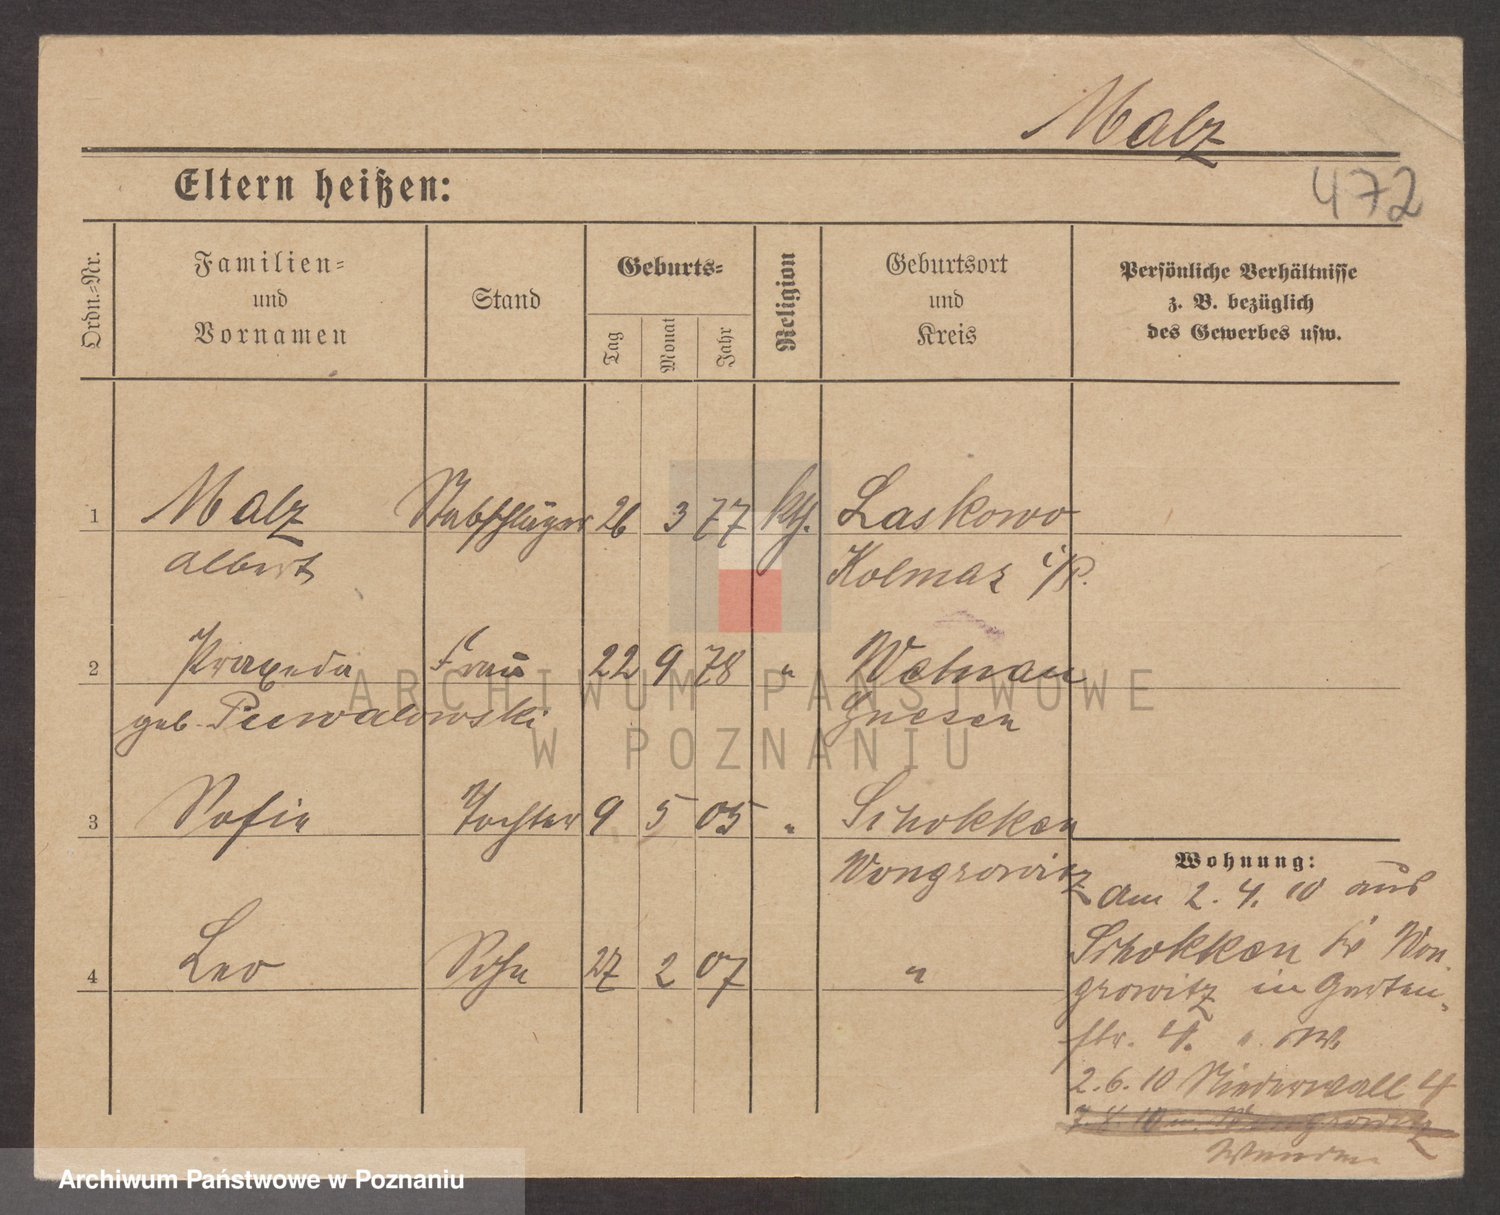 Malz
472
Eltern heißen:
Ordn.-Nr.
Familien-
und
Vornamen
Stand
Geburts-
Tag
Monat
Jahr
Religion
Geburtsort
und
Kreis
Persönliche Verhältnisse
z. B. bezüglich
des Gewerbes usw.
1 Malz Stabschläger 26 3 77 kth. Laskowo
Albert Kolmar i/P.
2 Praxeda Frau 22 9 78 " Welnau
geb. Gnesen
3 Sofie Tochter 9 5 05 " Schokken
Wongrowitz
4 Leo Sohn 27 2 07 "
Wohnung:
Am 2. 4. 10 aus
Schokken Kr Won-
growitz in Garten-
str. 4.
2.6.10 Niederwall 4
7. 8. 10 n. Wongrowitz
ARCHIWUM PAŃSTWOWE
W POZNANIU
Archiwum Państwowe w Poznaniu